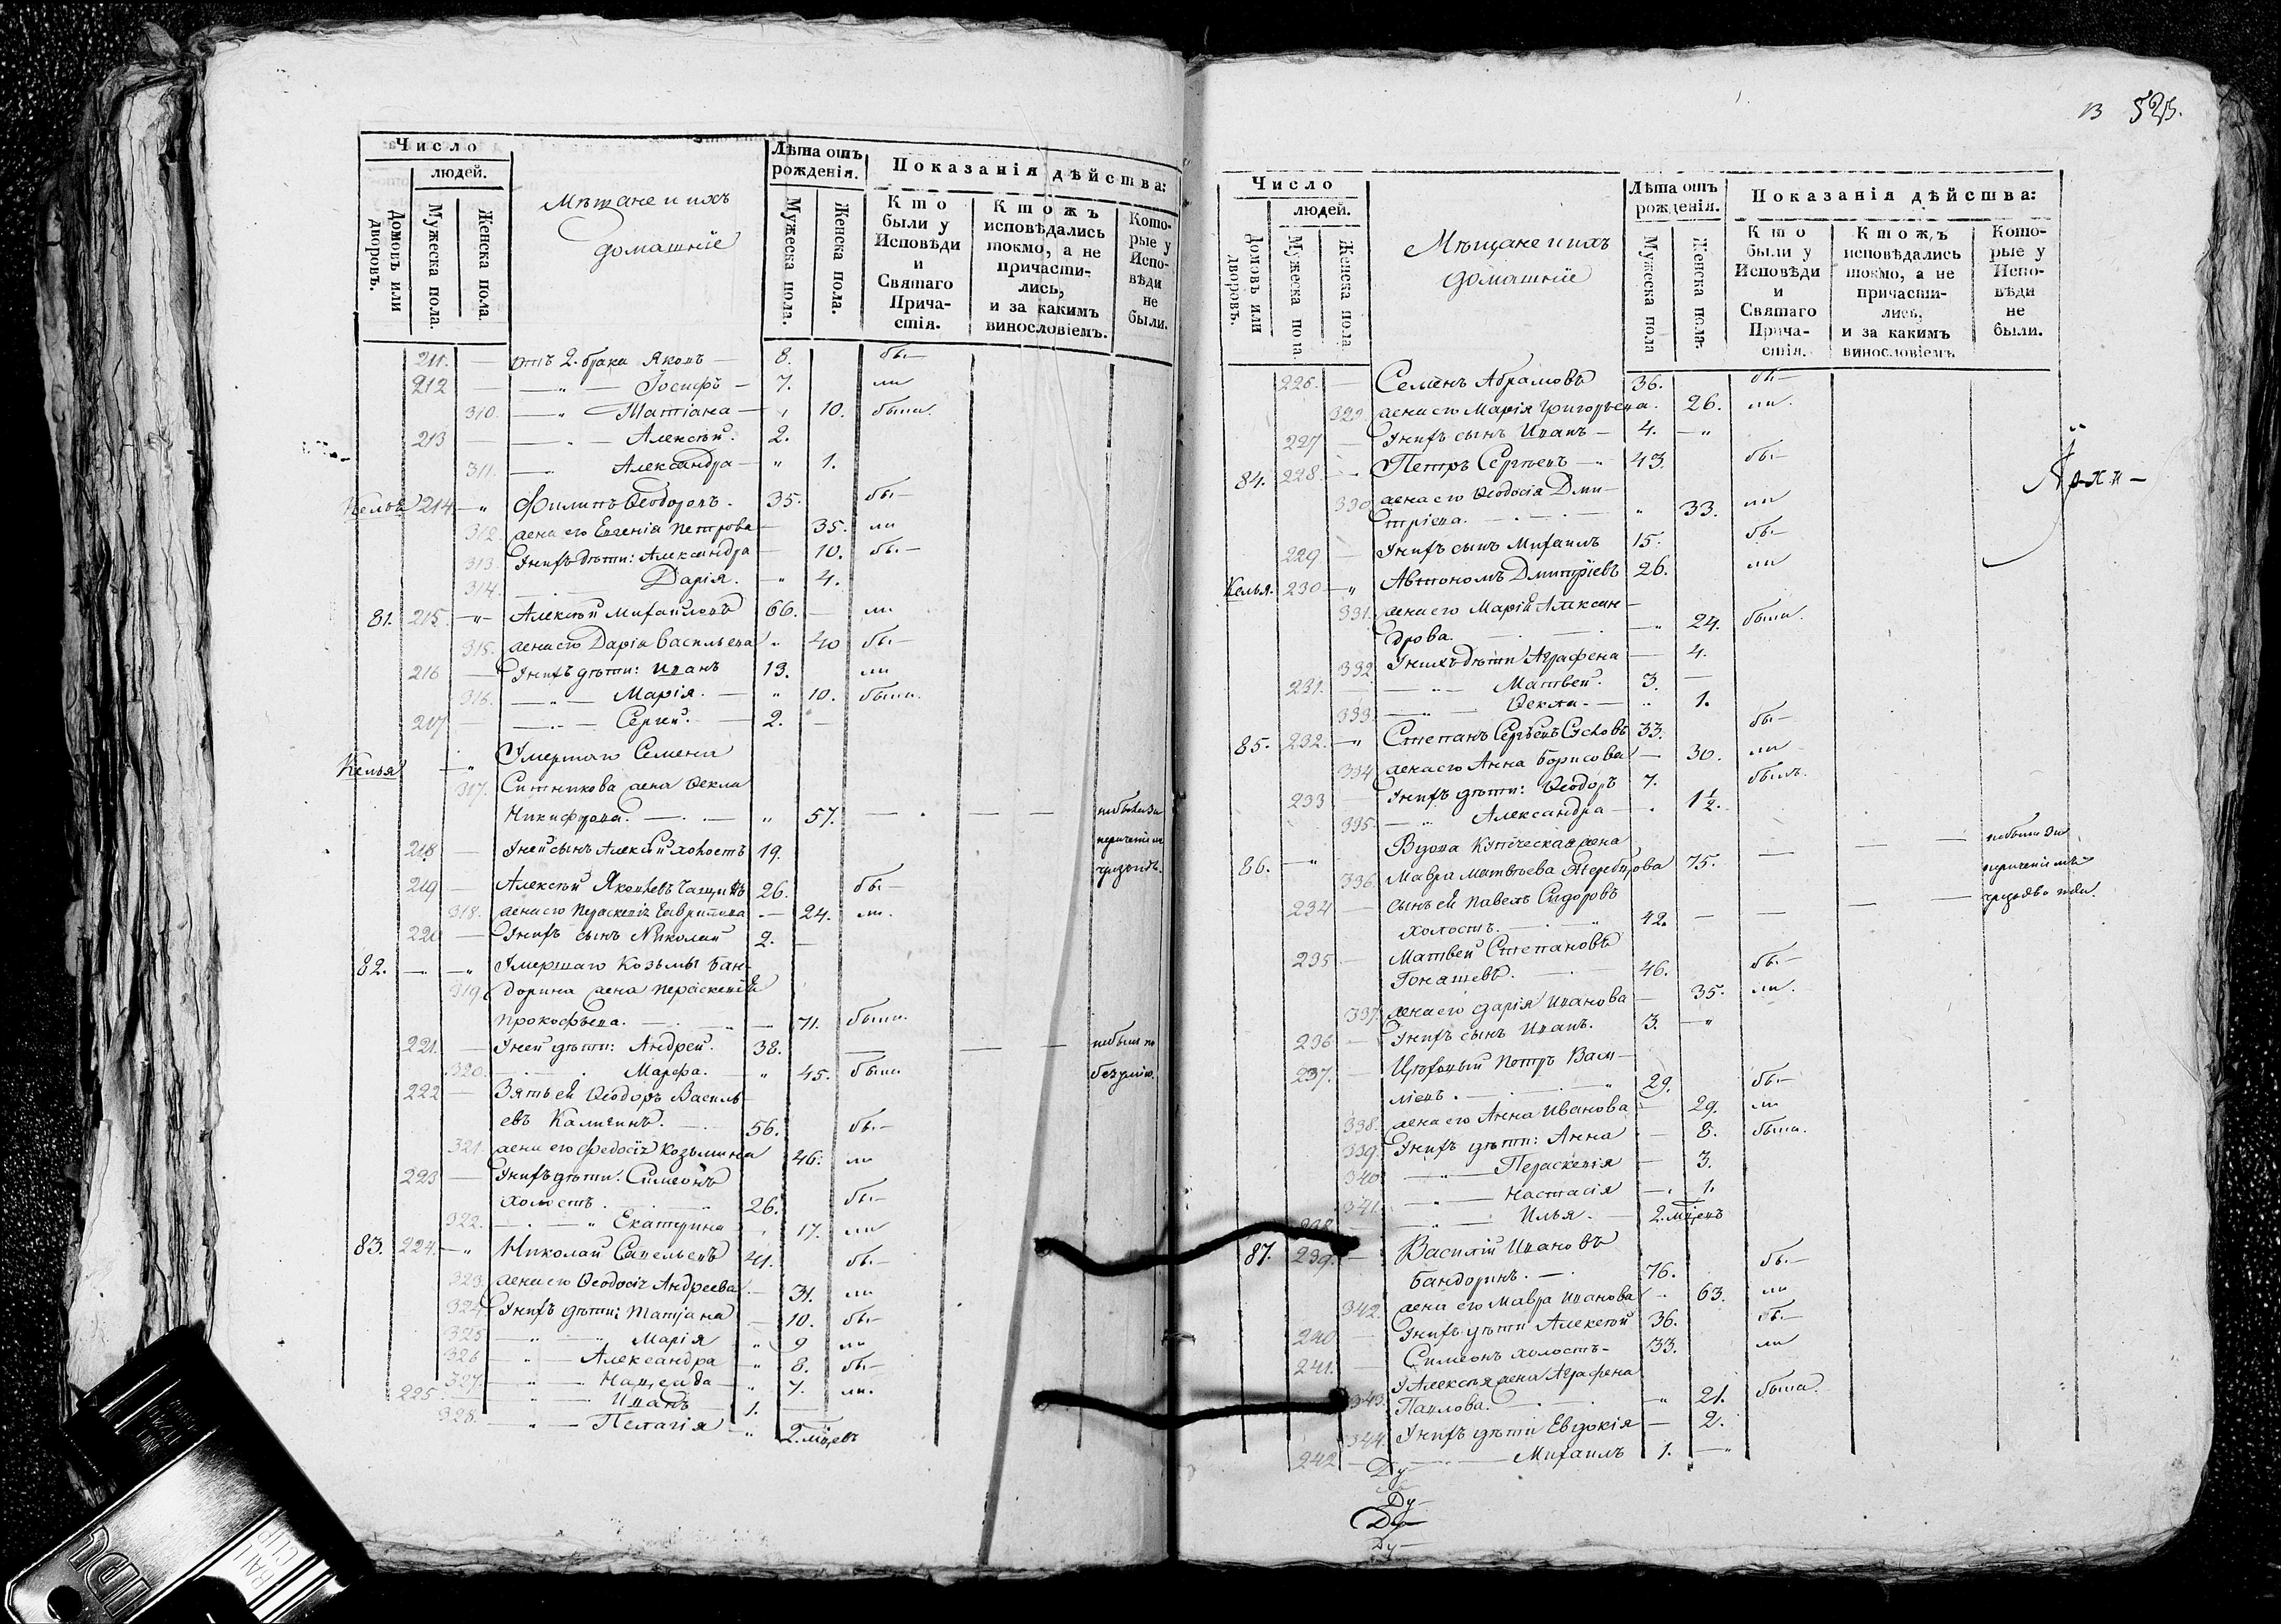 Число
людей.
Домовъ или дворовъ.
Мужеска пола.
Женска пола.
Мѣщане и ихъ
домашніе
Лѣта отъ
рожденія.
Мужеска пола.
Женска пола.
Показанія дѣйства:
Кто
были у
Исповѣди
и
Святаго
Прича-
стія.
Ктожъ
исповѣдались
токмо, а не
причасти-
лись,
и за какимъ
винословіемъ.
Кото-
рые у
Испо-
вѣди
не
были.
211. — отъ 2. брака Яковъ — 8. бы—
212 — — „ — Іосифъ — 7. ли
310. — „ — Татіана — „ 10. были.
213 — — „ — Алексѣй. 2.
311. — „ Александра — „ 1.
Келья 214 — „ Филипъ Ѳеодоровъ. 35. бы—
312. жена его Евгенія Петрова — 35. ли
313. У нихъ дѣти: Александра — 10. бы.—
314. — Дарія. — „ 4.
81. 215 — „ — Алексѣй Михайловъ 66. — ли
315. жена его Дарія Васильева „ 40 бы—
216 — У нихъ дѣти: Иванъ 13. ли
316. — „ — Марія. — „ 10. были.
217 — — „ — Сергей. — 2. —
Келья — „ Умершаго Семена
317. Ситникова жена Ѳекла
Никифорова. — . — „ 57. — . — — небыла за
218 — У ней сынъ Алексѣй холостъ 19.
219 — Алексѣй Яковлевъ 26. бы.—
318. жена его Параскевія — 24. ли.
220 — У нихъ сынъ Николай 2. —
82. — . — „ Умершаго Козьмы Бан-
319. дорина жена Параскевія
Прокофьева. — . „ — 71. были.
221. — У ней дѣти: Андрей. 38. — — — небылъ по
320. — Марфа. — „ 45. были безумію.
222 — Зять ей Ѳеодоръ Василь-
евъ Калигинъ. — . 56. бы.—
321. жена его Федосія Козьмина 46. ли
223 — У нихъ дѣти: Симеонъ
холостъ. — . „ 26. бы.—
322. — . — „ Екатерина „ 17. ли
83. 224. — „ Николай Савельевъ 41. бы.—
323. жена его Ѳеодосія Андреева. — 31. ли
324. У нихъ дѣти: Татіана — 10. бы—
325 — „ „ Марія „ 9 ли
326 — „ — Александра — „ 8. бы—
327. — „ — „ 7. ли.
225 — „ — Иванъ — 1. —
328. — „ — Пелагія — „ 2. мцевъ
13 523.
Число
людей.
Домовъ или дворовъ.
Мужеска пола
Женска пола
Мѣщане и ихъ
домашніе
Лѣта отъ
рожденія.
Мужеска пола
Женска пола.
Показанія дѣйства:
Кто
были у
Исповѣди
и
Святаго
Прича-
стія.
Ктожъ
исповѣдались
токмо, а не
причасти-
лись,
и за какимъ
винословіемъ
Кото-
рые у
Испо-
вѣди
не
были.
226. — Семенъ Абрамовъ 36. бы—
329 жена его Марія Григорьева. 26. ли.
227 — У нихъ сынъ Иванъ — 4. — „
84. 228. — „ Петръ Сергѣевъ — „ 43. бы—
330 жена его Ѳеодосія Дми-
тріева. — . — . — „ 33. ли
229 — У нихъ сынъ Михаилъ 15. бы.—
Келья. 230 — „ Автономъ Дмитріевъ 26. ли
331. жена его Марія Алексан-
дрова. — . — „ 24. были.
332. У нихъ дѣти Аграфена — 4.
231. — — „ — Матвей. 3. —
333. — „ Ѳекла. — „ 1.
85. 232. — „ Степанъ Сергѣевъ 33. бы—
334 жена его Анна Борисова — 30. ли
233 — У нихъ дѣти: Ѳеодоръ 7. былъ.
335 — „ Александра — „ 1½.
Вдова Купеческая жена
86. — „ 336. Мавра Матвѣева 75. — — — небыли за
234 — сынъ ей Павелъ Сидоровъ
холостъ. — . „ 42. — — — —
235 — Матвей Степановъ
46. бы.—
337. жена его Дарія Иванова — 35. ли.
236 — У нихъ сынъ Иванъ. 3. — „
237. — Цеховый Петръ Васи-
ліевъ. — . — „ 29. бы—
338. жена его Анна Иванова — 29. ли
339. У нихъ дѣти: Анна — 8. были.
340 — „ — Параскевія — 3.
341. — „ — Настасія — „ 1.
238 — — „ — Илья. — 2. мцевъ
87. 239. — Василій Ивановъ
Бандоринъ. — . 76. бы.—
342. жена его Мавра Иванова „ 63. ли
240 — У нихъ дѣти Алексѣй 36. бы.—
241. — Симеонъ холостъ — 33. ли
343. У Алексѣя жена Аграфена
Павлова. — . — . „ 21. была.
344. У нихъ дѣти Евдокія — 2.
242 — — „ — Михаилъ 1. — „
Архи-
Ду-
Ду-
Ду-
Ду-
BALL CLIP